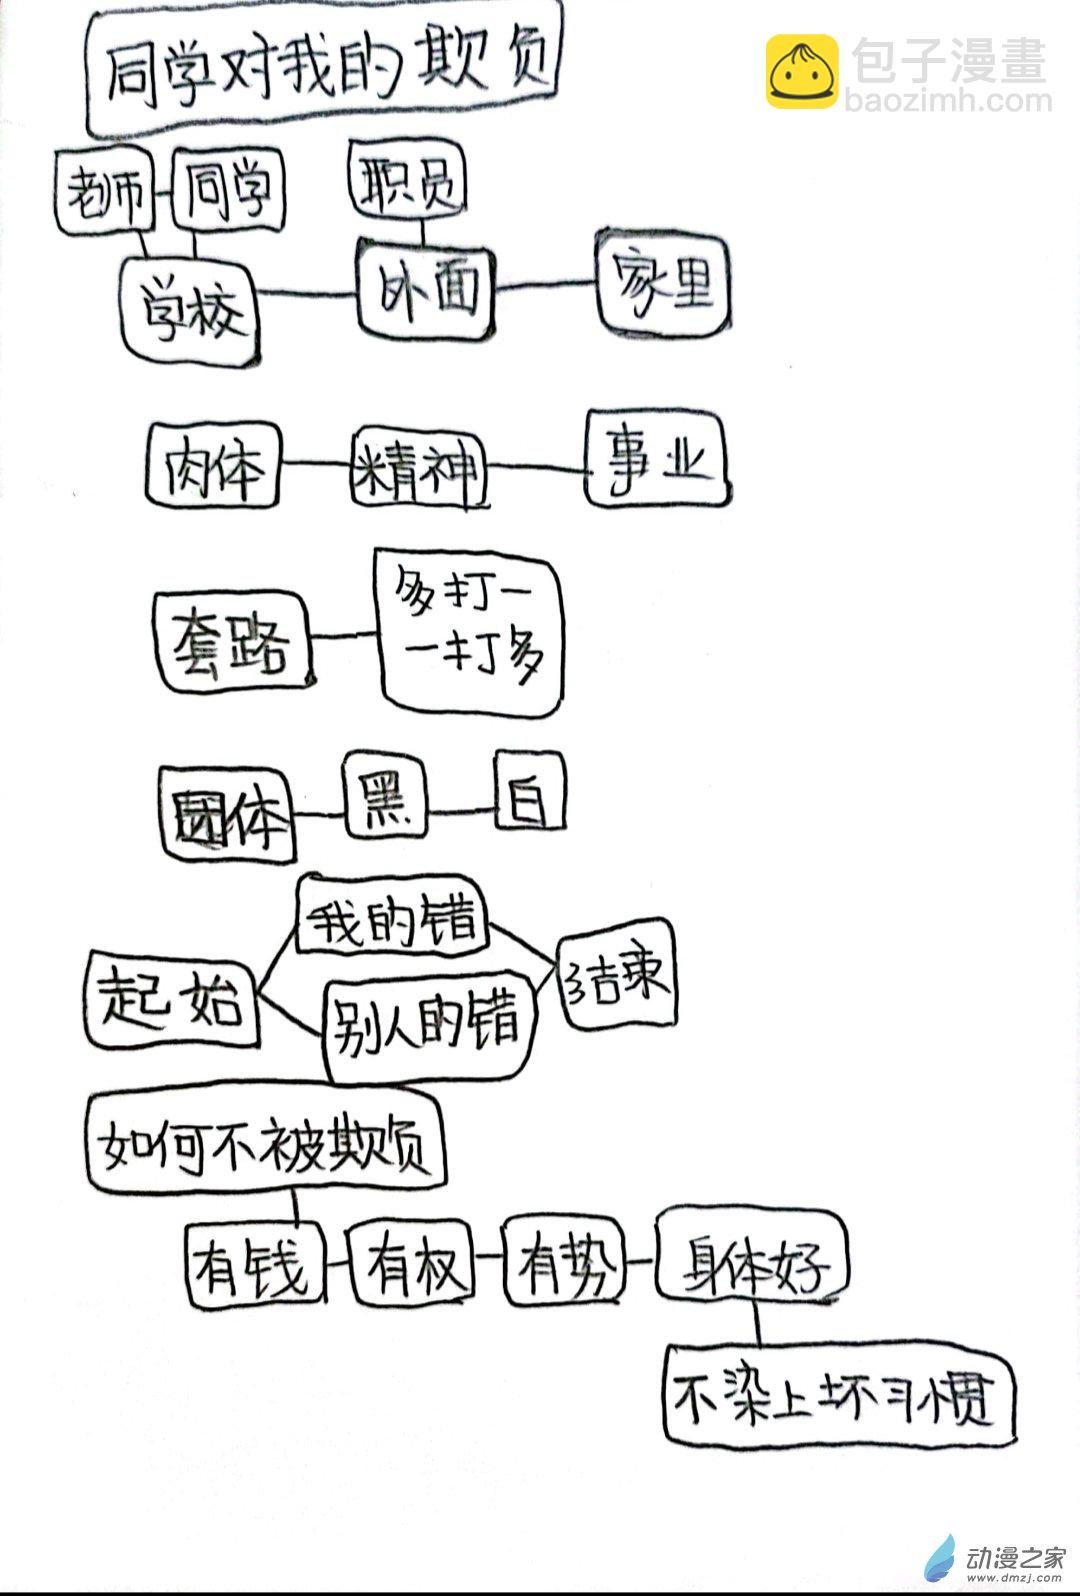 同学对我的欺负
包子漫畫
baozimh.com
老师 同学 职员
学校 外面 家里
肉体 精神 事业
套路 多打一
一打多
团体 黑 白
我的错
起始 结束
别人的错
如何不被欺负
有钱 有权 有势 身体好
不染上坏习惯
动漫之家
www.dmzj.com